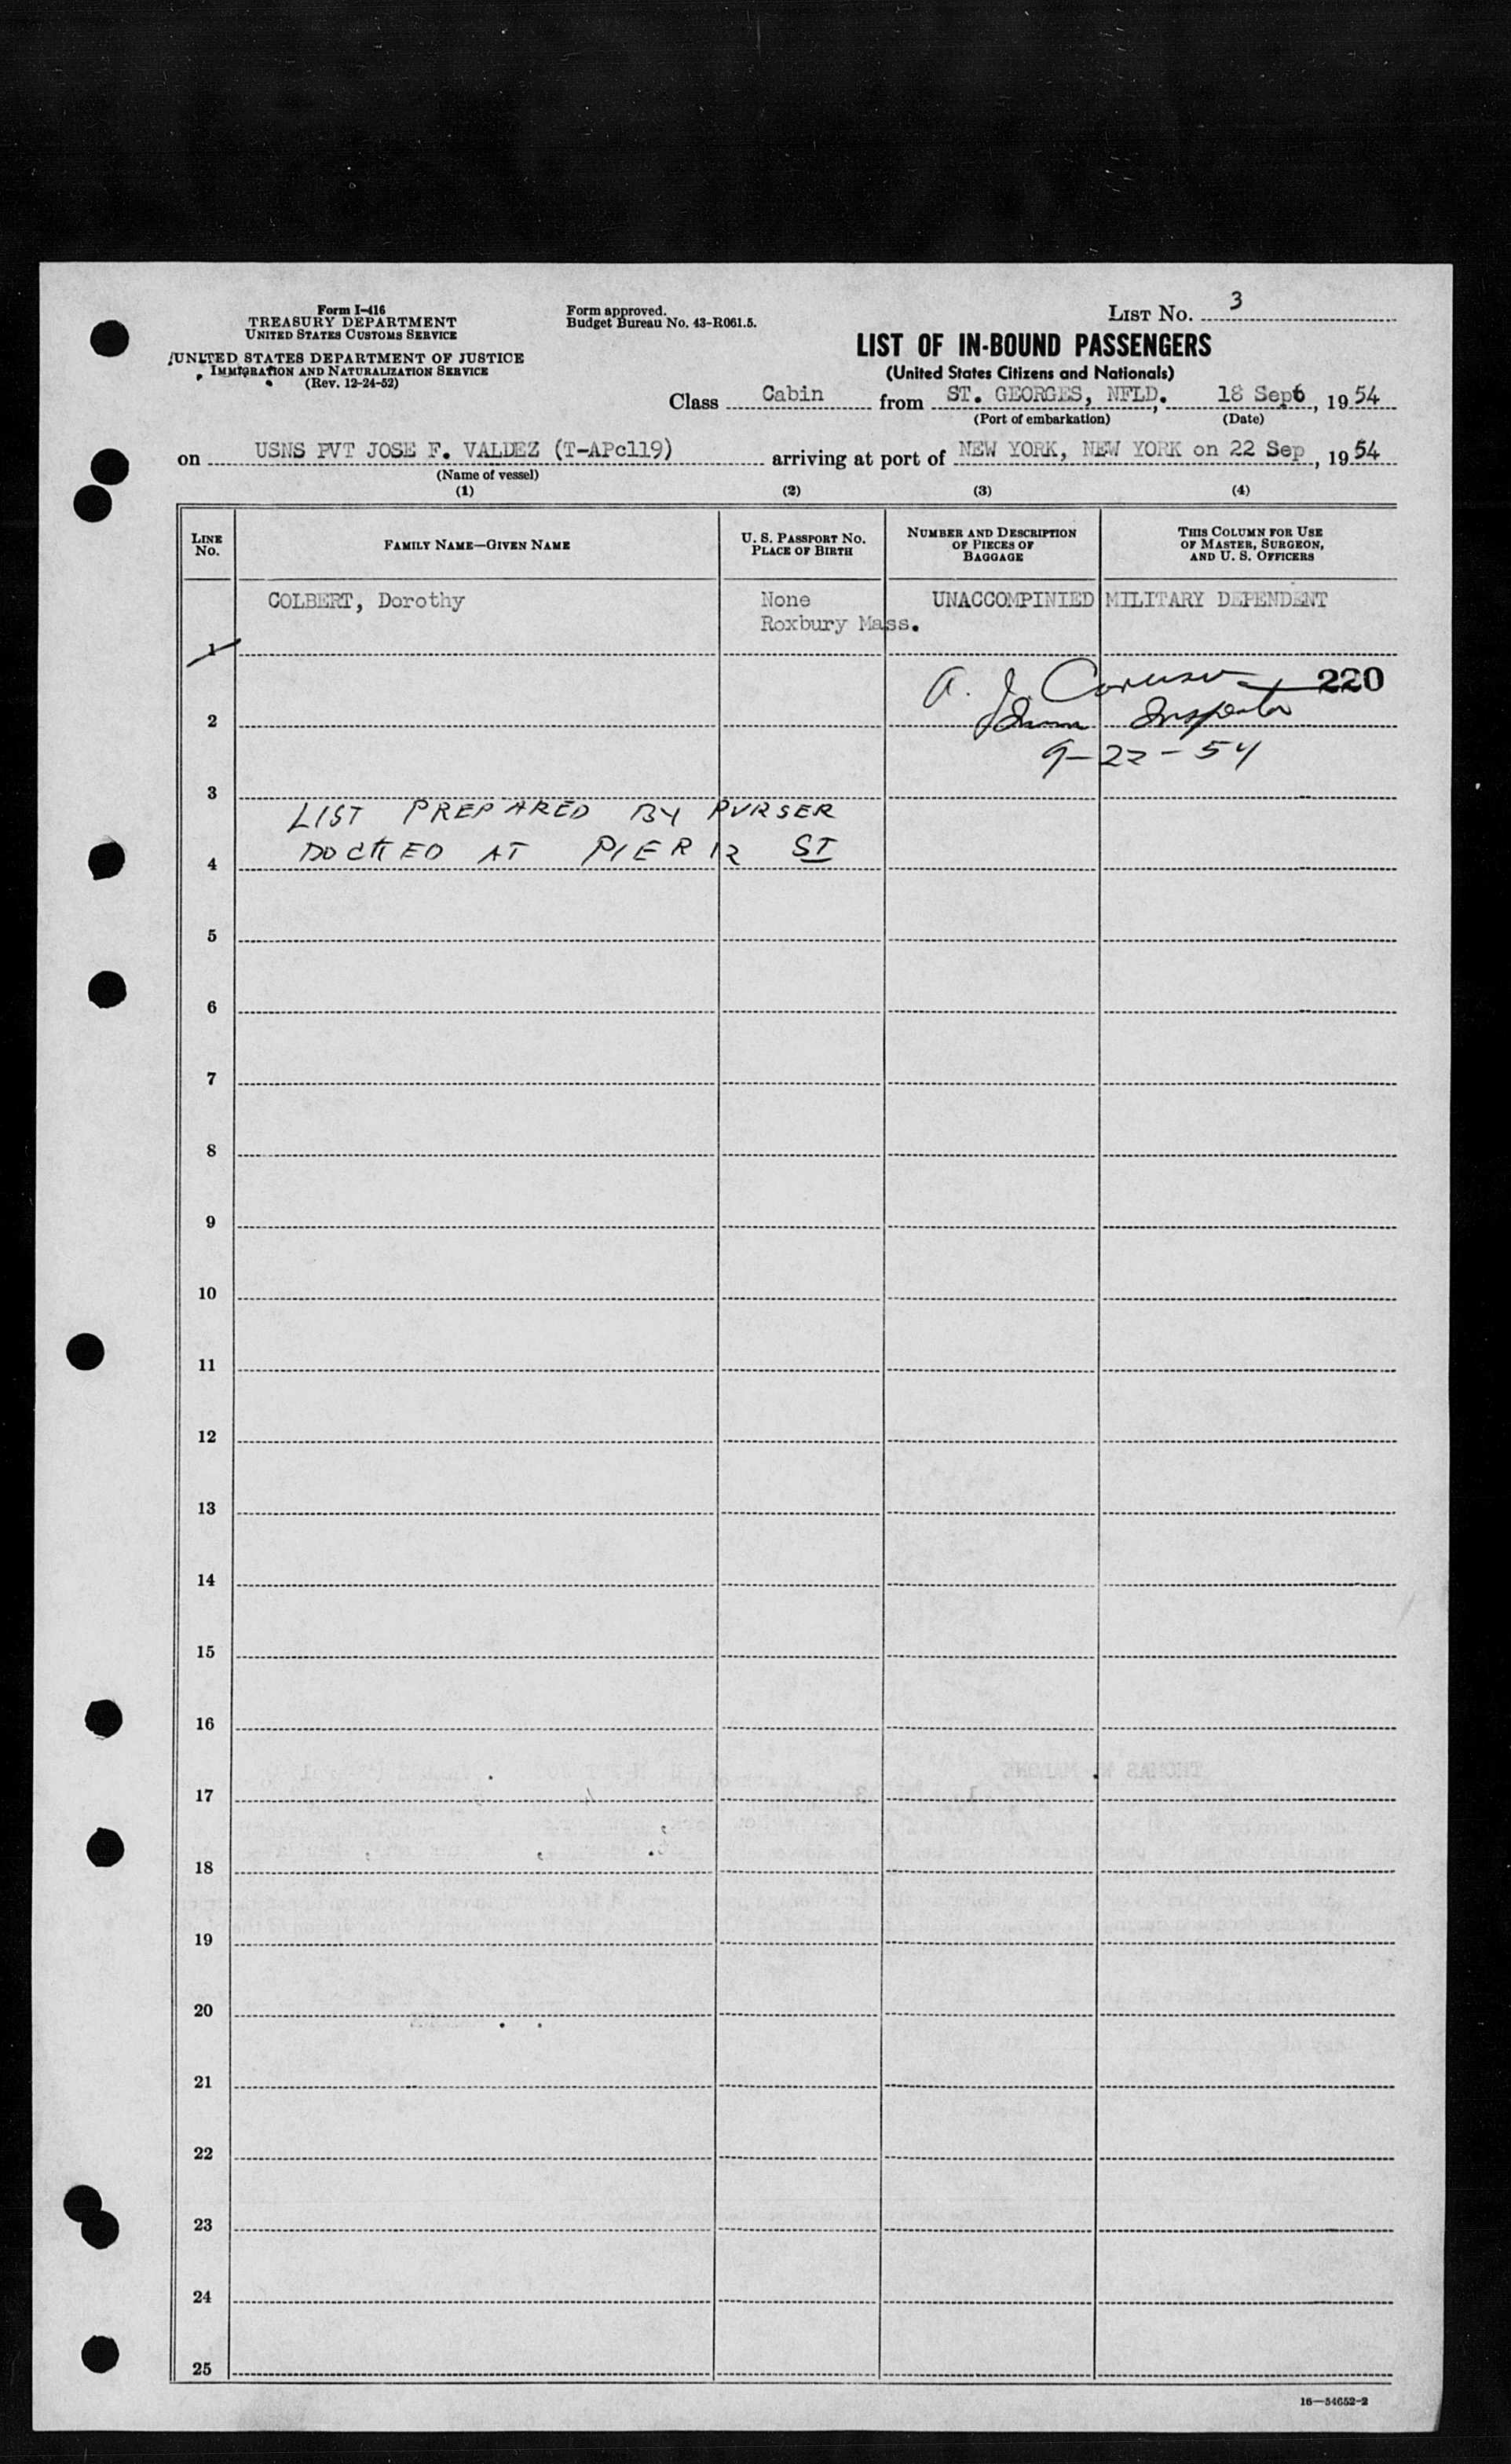 Form I-416
TREASURY DEPARTMENT
UNITED STATES CUSTOMS SERVICE
UNITED STATES DEPARTMENT OF JUSTICE
IMMIGRATION AND NATURALIZATION SERVICE
(Rev. 12-24-52)
Form approved.
Budget Bureau No. 43-R061.5.
LIST NO. 3
LIST OF IN-BOUND PASSENGERS
(United States Citizens and Nationals)
Class Cabin from ST. GEORGES, NFLD., 18 Sep6, 1954
(Port of embarkation) (Date)
on USNS PVT JOSE F. VALDEZ (T-APc119) arriving at port of NEW YORK, NEW YORK on 22 Sep, 1954
(Name of vessel)
(1) (2) (3) (4)
LINE NO. FAMILY NAME—GIVEN NAME U. S. PASSPORT NO. PLACE OF BIRTH NUMBER AND DESCRIPTION OF PIECES OF BAGGAGE THIS COLUMN FOR USE OF MASTER, SURGEON, AND U. S. OFFICERS
COLBERT, Dorothy None UNACCOMPINIED MILITARY DEPENDENT
Roxbury Mass.
1
A. J. Caruso 220
2 Imm Inspector
9-22-54
3
LIST PREPARED BY PURSER
4 DOCKED AT PIER 12 ST
5
6
7
8
9
10
11
12
13
14
15
16
THOMAS W. MALONE
17
18
19
20
21
22
23
24
25
16—54652-2